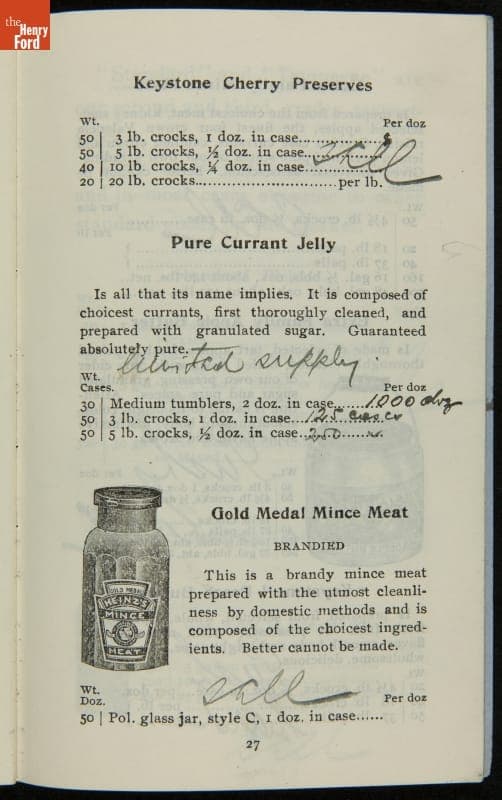 the
Henry
Ford
Keystone Cherry Preserves
Wt. Per doz
50 | 3 lb. crocks, 1 doz. in case............$
50 | 5 lb. crocks, ½ doz. in case............
40 | 10 lb. crocks, ¼ doz. in case............
20 | 20 lb. crocks..............................per lb.
Pure Currant Jelly
Is all that its name implies. It is composed of
choicest currants, first thoroughly cleaned, and
prepared with granulated sugar. Guaranteed
absolutely pure.
limited supply
Wt.
Cases. Per doz
30 | Medium tumblers, 2 doz. in case......1000 doz
50 | 3 lb. crocks, 1 doz. in case...125 cases
50 | 5 lb. crocks, ½ doz. in case...250 "
Gold Medal Mince Meat
BRANDIED
This is a brandy mince meat
prepared with the utmost cleanli-
ness by domestic methods and is
composed of the choicest ingred-
ients. Better cannot be made.
GOLD MEDAL
HEINZ'S
MINCE
MEAT
Wt.
Doz. Per doz
50 | Pol. glass jar, style C, 1 doz. in case......
27